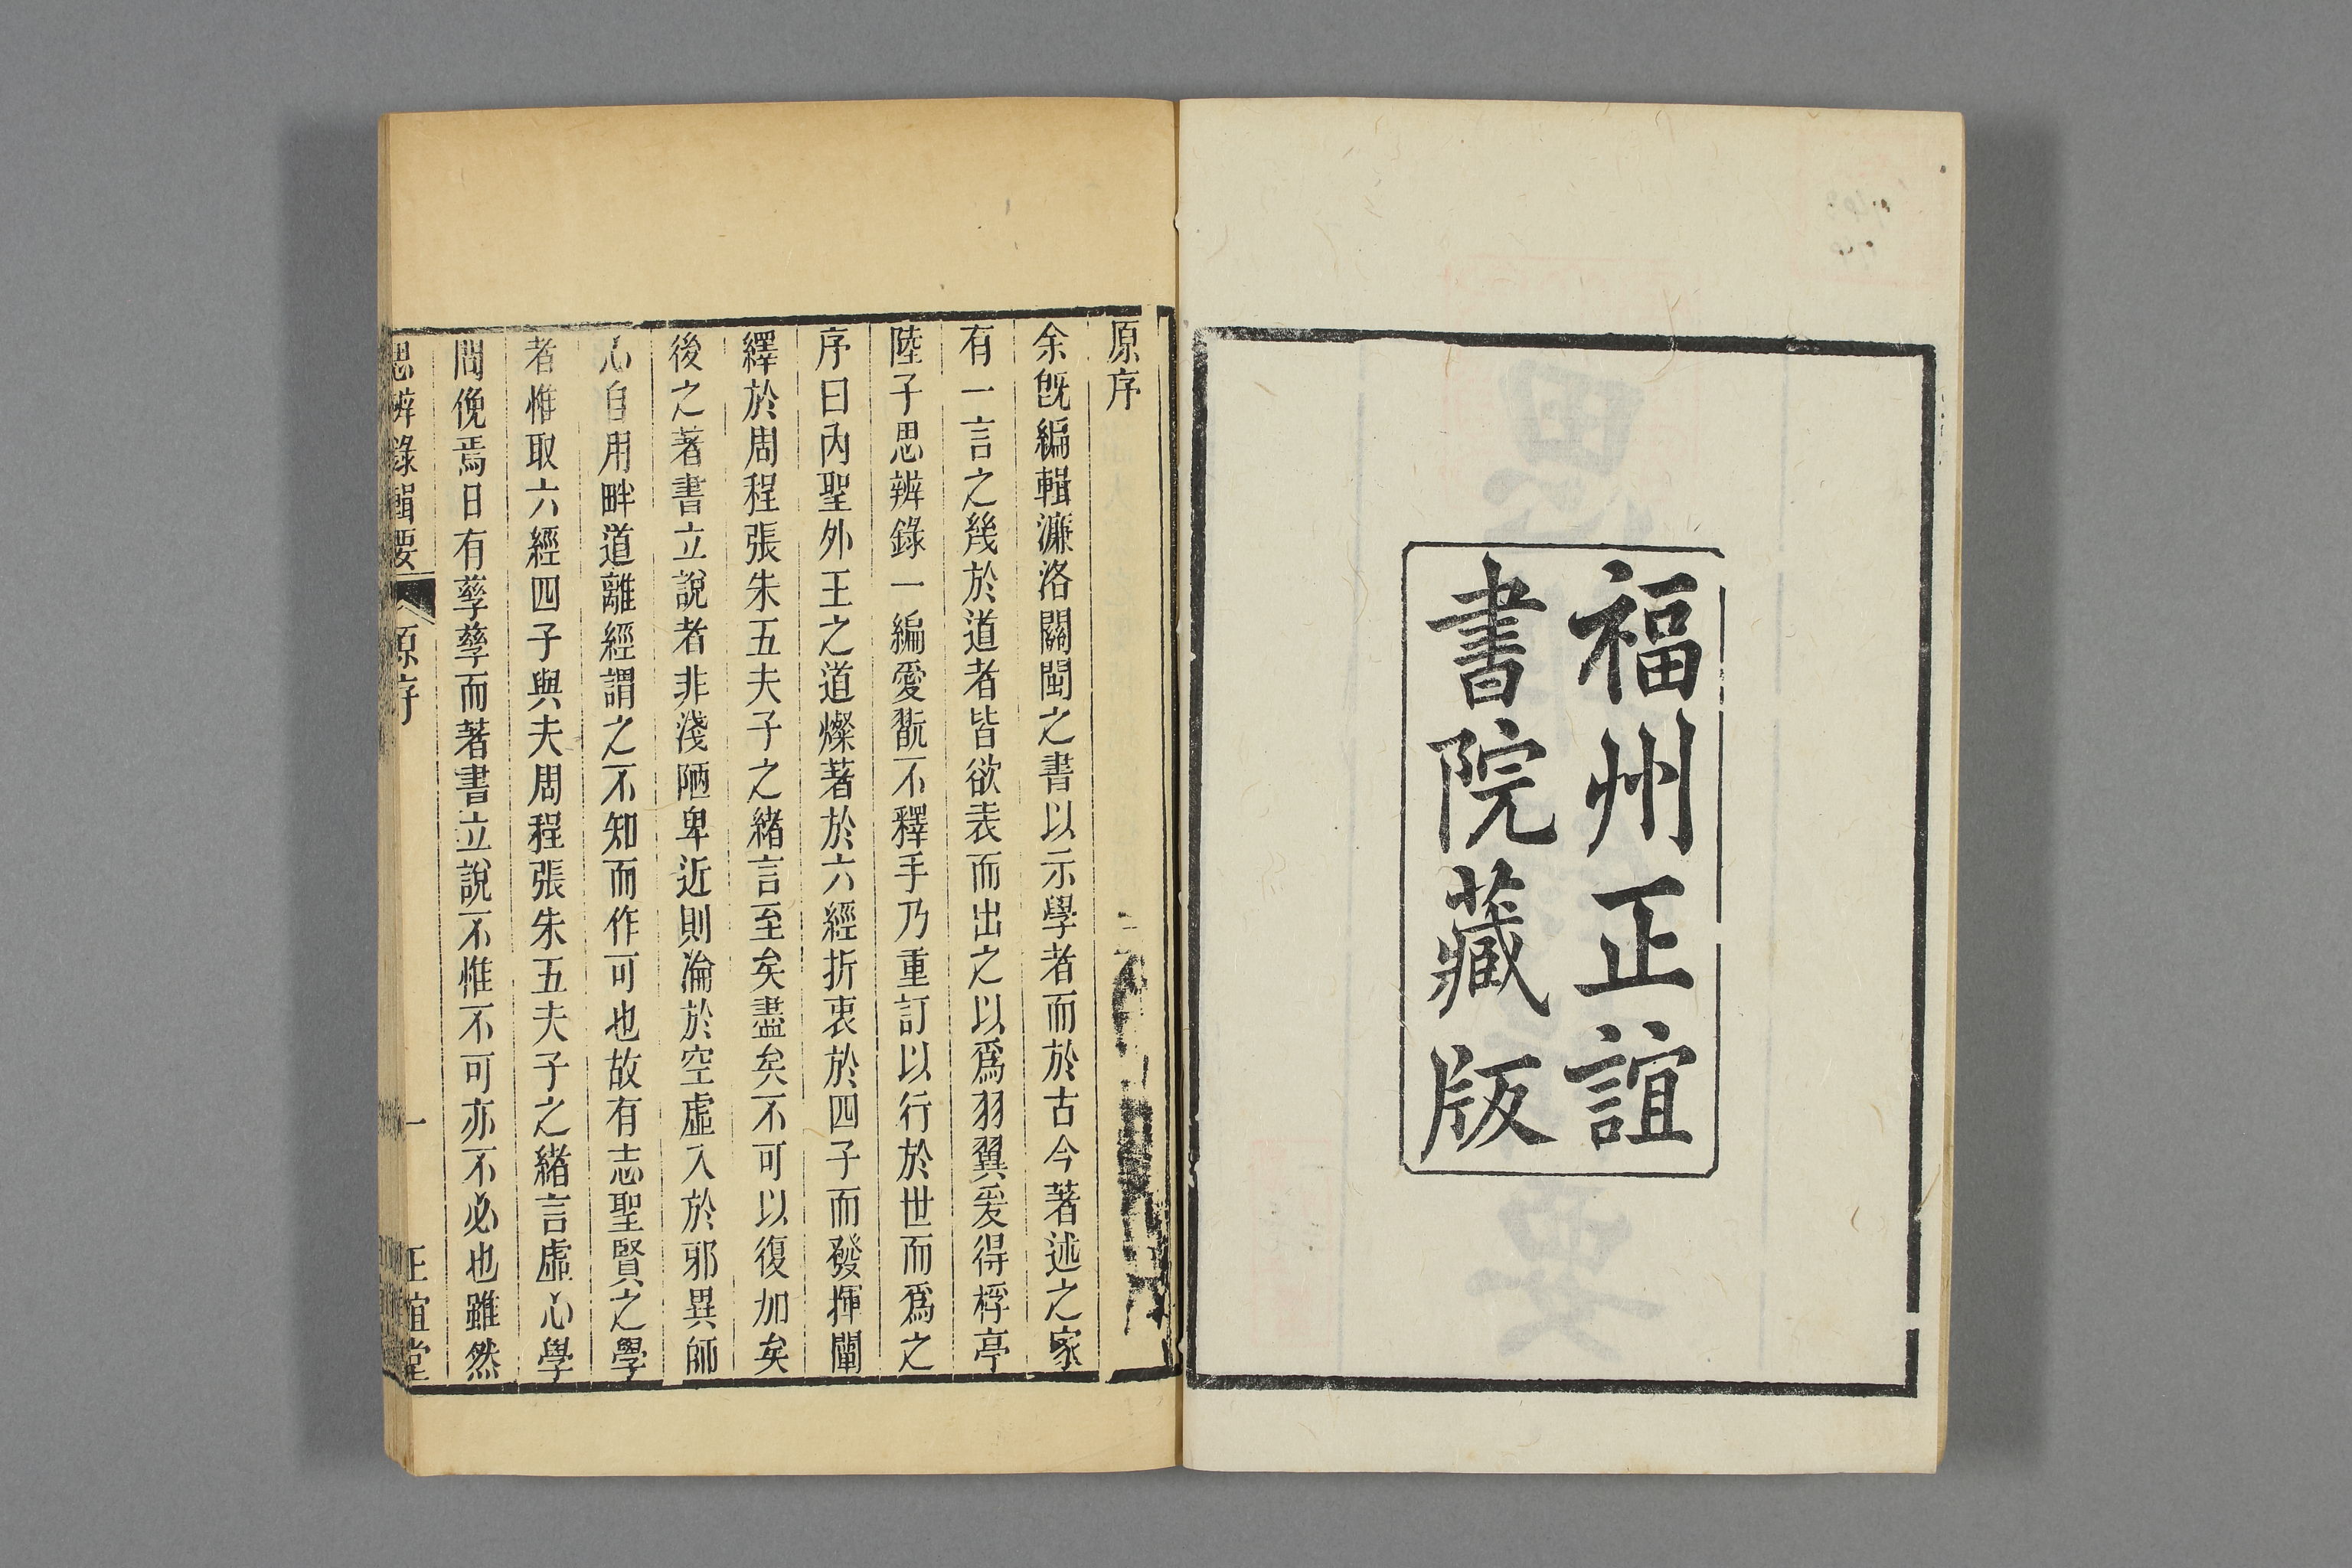 福州正誼
書院藏版
原序
余旣編輯濂洛關閩之書以示學者而於古今著述之家
有一言之幾於道者皆欲表而出之以爲羽翼爰得桴亭
陸子思辨錄一編愛翫不釋手乃重訂以行於世而爲之
序曰內聖外王之道燦著於六經折衷於四子而發揮闡
繹於周程張朱五夫子之緒言至矣盡矣不可以復加矣
後之著書立說者非淺陋卑近則淪於空虛入於邪異師
心自用畔道離經謂之不知而作可也故有志聖賢之學
者惟取六經四子與夫周程張朱五夫子之緒言虛心學
問俛焉日有孳孳而著書立說不惟不可亦不必也雖然
思辨錄輯要 原序 一 正誼堂